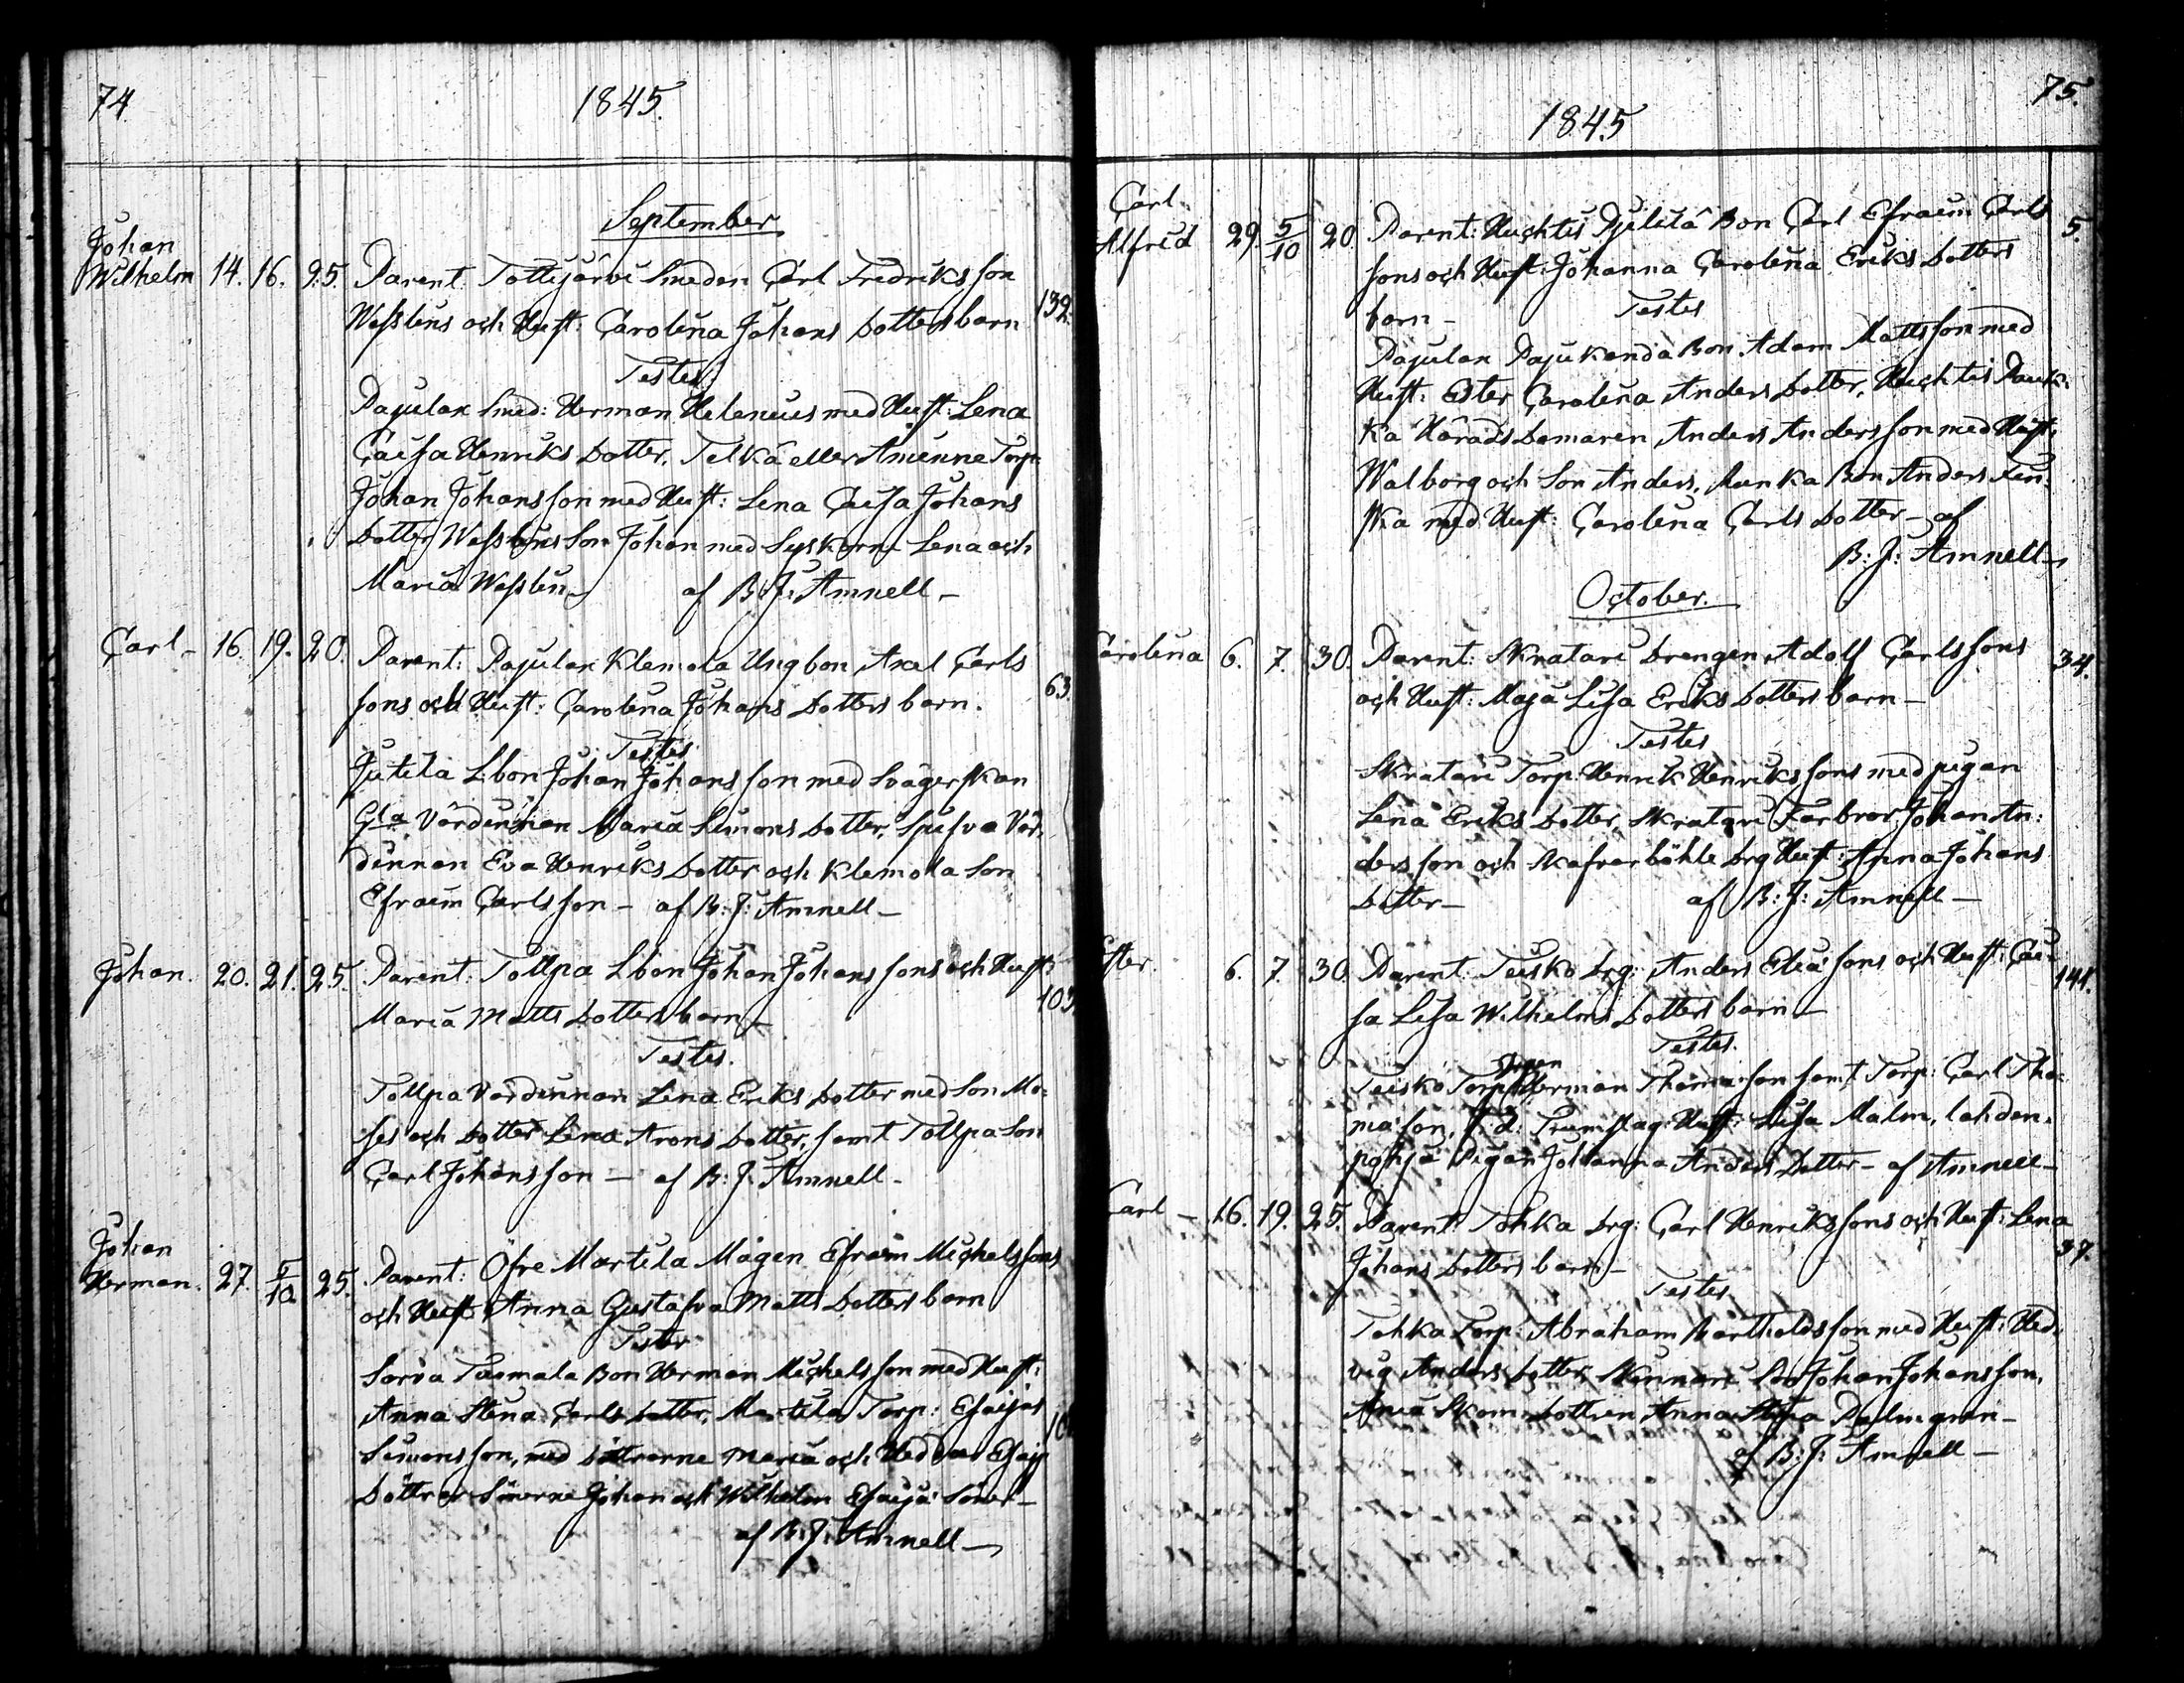 74
1845.
September
Johan
Wilhelm 14. 16. 25. Parent. Tottijärvi Smeden Carl Fredriksson
Wesslens och Hust: Carolina Johans Dotters barn 132.
Testes
Pajulax Smed: Herman Helenius med Hust: Lena
Caisa Henriks Dotter, Telkä eller Anienne Torp:
Johan Johansson med Hust: Lena Caisa Johans
Dotter Wesslens Son Johan med Syskorne Lena och
Maria Wesslen af B: J: Amnell –
Carl – 16. 19. 20. Parent: Pajulax Klemola Ungbon Axel Carls
sons och Hust: Carolina Johans Dotters barn. 63.
Testes
Jutila Lbon Johan Johansson med Svägerskan
Gla Värdinnan Maria Simons Dotter, Vär
dinnan Eva Henriks Dotter och Klemola Son
Efraim Carlsson – af B: J: Amnell –
Johan. 20. 21. 25. Parent: Tollpa Lbon Johan Johanssons och Hust:
Maria Matts Dotters barn – 103
Testes.
Tollpa Värdinnan Lena Eriks Dotter med Son Mo:
ses och Dotter Lena Arons Dotter, samt Tollpa Son
Carl Johansson – af B: J: Amnell –
Johan
Herman. 27. 5/10 25. Parent: Öfre Martila Mågen Efraim Michelssons
och Hust: Anna Gustafva Matts Dotters barn
Testes
Sarva Tuomala Bon Herman Michelsson med Hust:
Anna Stina Carls Dotter, Martila Torp: Esaijas
Simonsson, med Döttrarne Maria och Hedda Esaij
Döttrar Sönerne Johan och Wilhelm Esaija Söner –
af B: J: Amnell –
75.
1845
Carl
Alfred 29. 5/10 20. Parent: Huchtis Pjeletä Bon Carl Efraim Carls 5.
sons och Hust: Johanna Carolina Eriks Dotters
barn – Testes
Pajulax Pajukanda Bon Adam Mattsson med
Hust: Ester Carolina Anders Dotter, Huchtis Pauk:
ka Häradsdomaren Anders Andersson med Hust:
Walborg och Son Anders, Bon Anders
med Hust: Carolina Carls Dotter – af
B: J: Amnell –
October.
Carolina 6. 7. 30. Parent: Skratari Drengen Adolf Carlssons 34.
och Hust: Maja Lisa Eriks Dotters barn –
Testes
Skratari Torp: Henrik Henrikssons med pigan
Lena Eriks Dotter, Skratari Farbror Johan An:
dersson och Skafvarböhle Drg Hust: Anna Johans
Dotter – af B: J: Amnell –
Ester. 6. 7. 30. Parent: Teisko Drg: Anders Eliä sons och Hust: Cai 141.
sa Lisa Wilhelms Dotters barn –
Testes.
Teisko Torp Herman Thomasson samt Torp: Carl Tho
mäson, f. d. Trumslag: Hust: Lisa Malm, lahden.
pohja Pigan Johanna Anders Dotter – af Amnell –
Carl – 16. 19. 25. Parent: Tohka Drg: Carl Henrikssons och Hust: Lena
Johans Dotters barn – 37.
Testes
Tohka Torp: Abraham Bartholdsson med Hust: Hed
vig Anders Dotter, Skinnari Johan Johansson,
Ania Skom: Dottren Anna Stina Palmgren –
af B: J: Amnell –